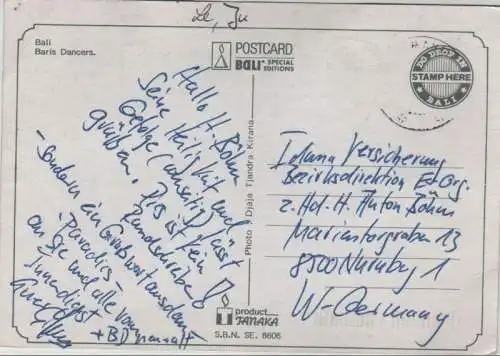 Le, Ju
Bali
Baris Dancers.
POSTCARD
BALI SPECIAL
EDITIONS
DO DROP IN
STAMP HERE
BALI
Hallo H. Böhm
Seine Heiligkeit und
Gefolge lässt
grüßen. Dies ist kein
Rundschreiben
- Sondern ein Grußwort aus dem
Paradies -
an Sie und alle von
+ BD
Innendienst
Photo : Djaja Tjandra Kirana
Iduna Versicherung
Bezirksdirektion
z. Hd. H. Anton Böhm
Marientorgraben 13
8500 Nürnbg 1
W-Germany
product
TANAKA
S.B.N. SE. 8606